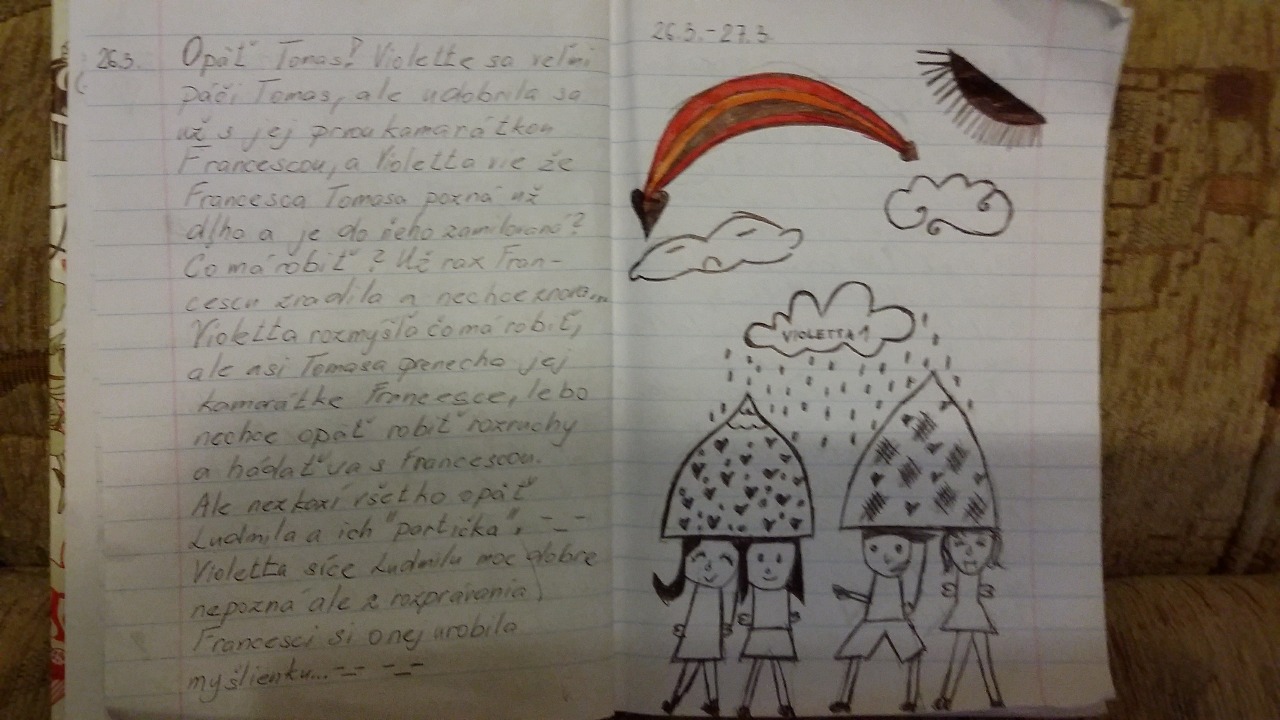 26.3. Opäť Tomas? Violette sa veľmi
páči Tomas, ale udobrila sa
už s jej prvou kamarátkou
Francescou, a Violetta vie že
Francesca Tomasa pozná už
dlho a je do neho zamilovaná?
Čo má robiť? Už raz Fran-
cescu zradila a nechce znova...
Violetta rozmýšla čo má robiť,
ale asi Tomasa prenecha jej
kamarátke Francesce, lebo
nechce opäť robiť rozruchy
a hádať sa s Francescou.
Ale nezkazí všetho opäť
Ludmila a ich "partička". -_-
Violetta síce Ludmilu moc dobre
nepozná ale z rozprávania
Francesci si o nej urobila
myšlienku... -- --
26.3.-27.3.
VIOLETTA 1